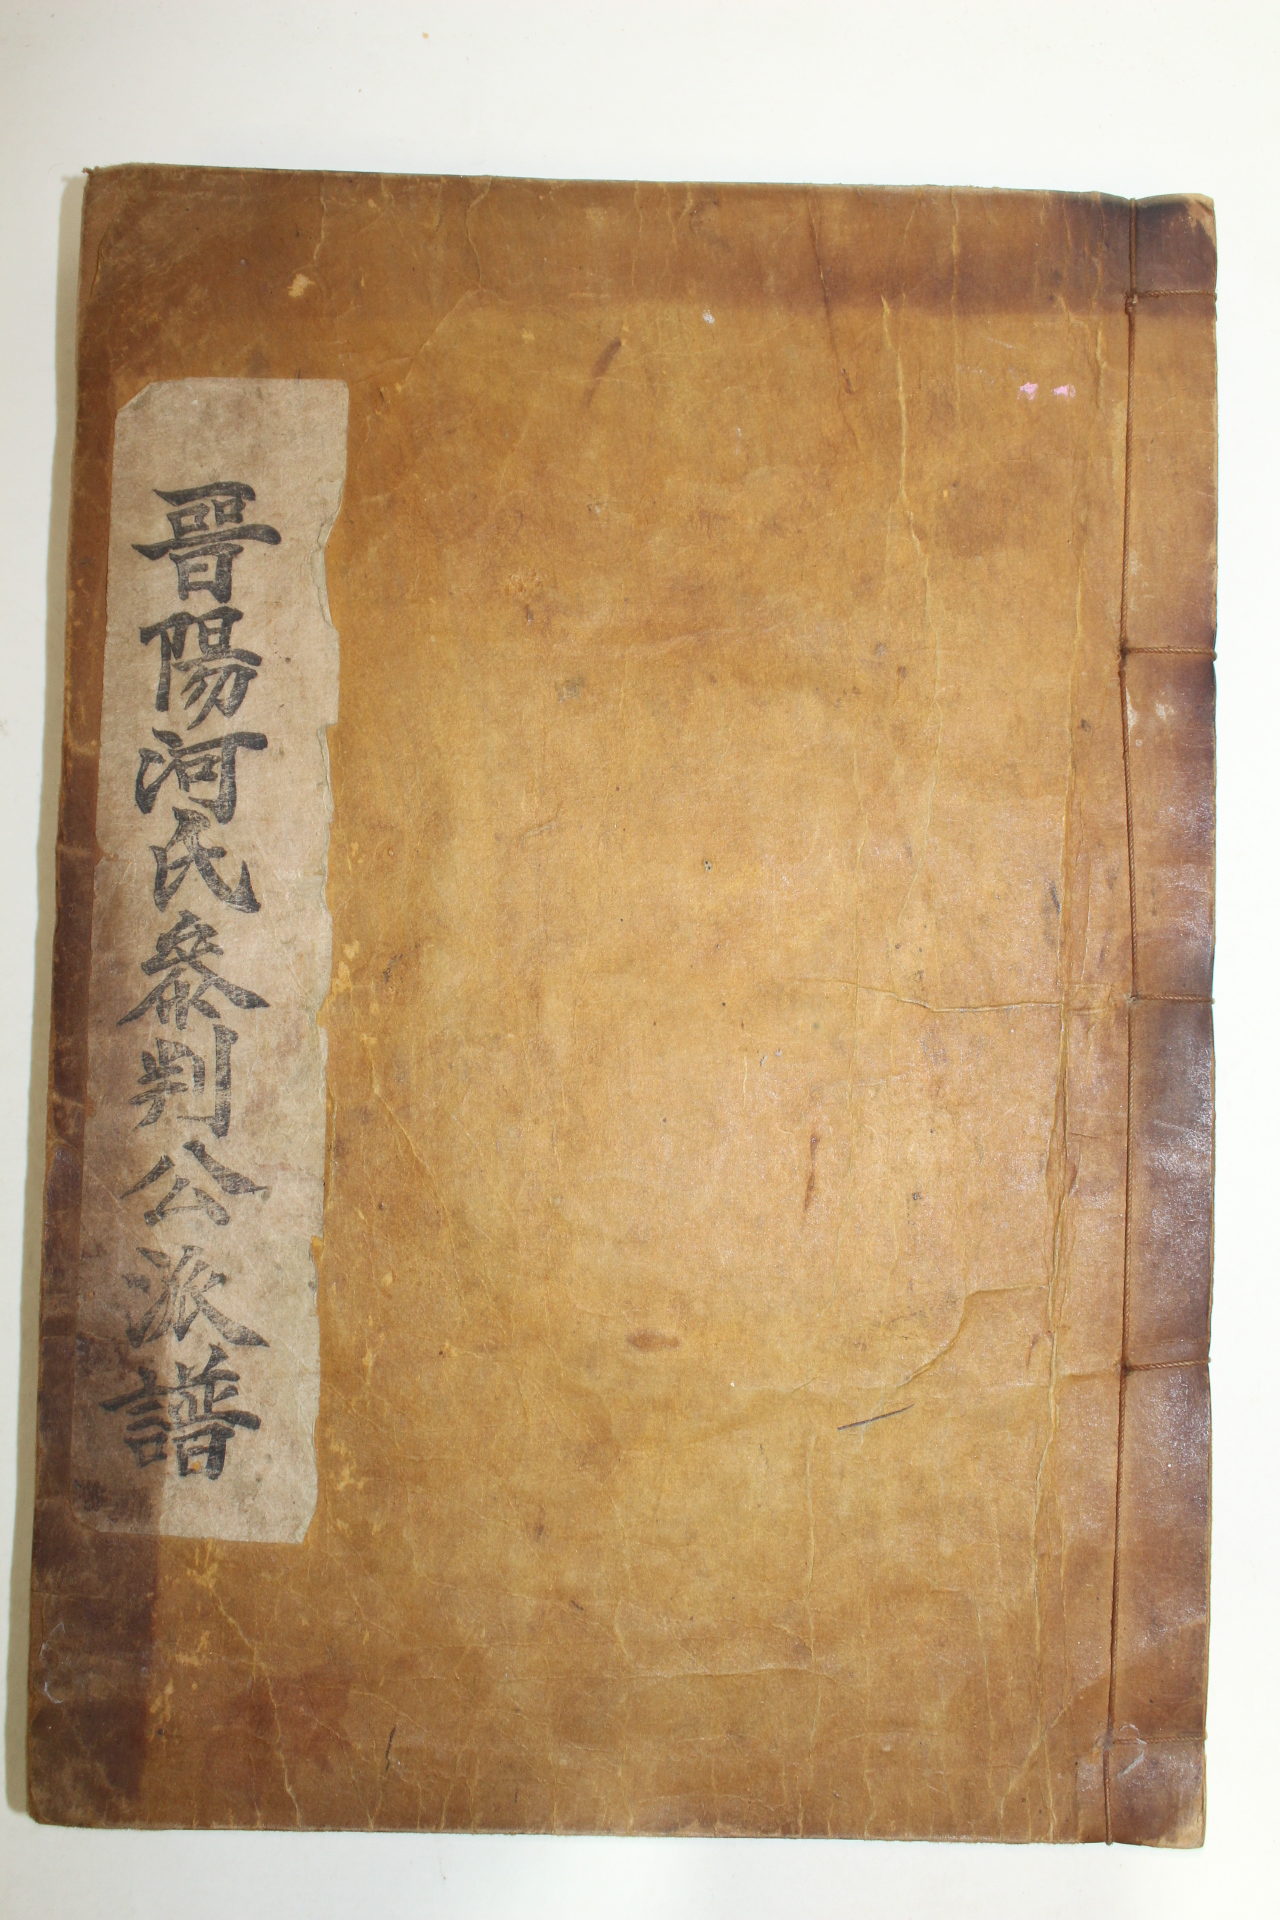 晋陽河氏叅判公派譜